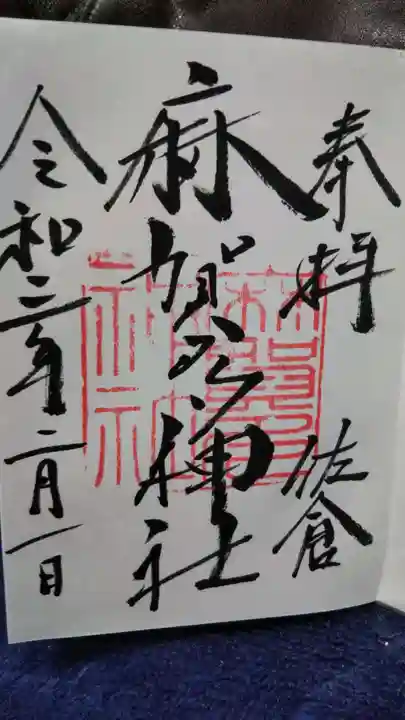 奉拝 佐倉
麻賀多神社
令和二年二月一日